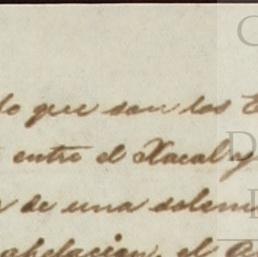 lo que son los
entre el Xacal y
de una solem
apelacion, el